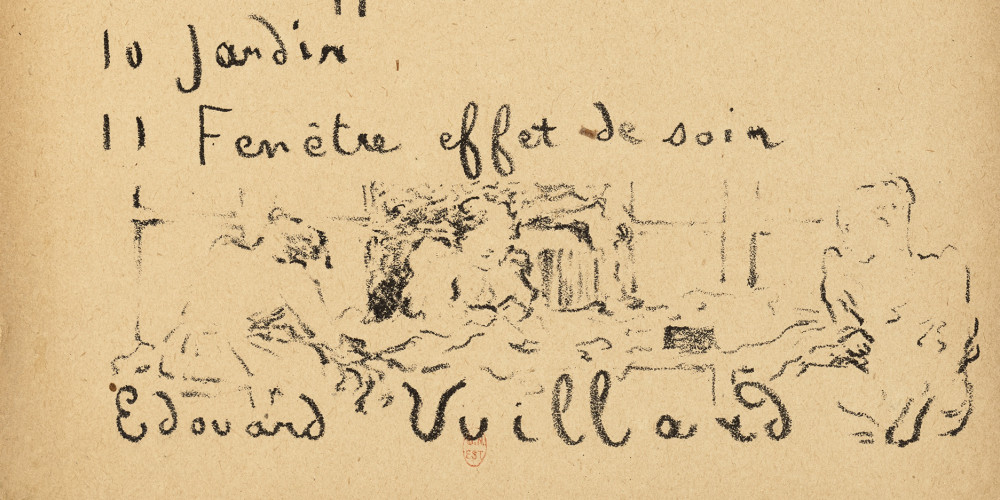 10 Jardin
11 Fenêtre effet de soir
Edouard Vuillard
EST